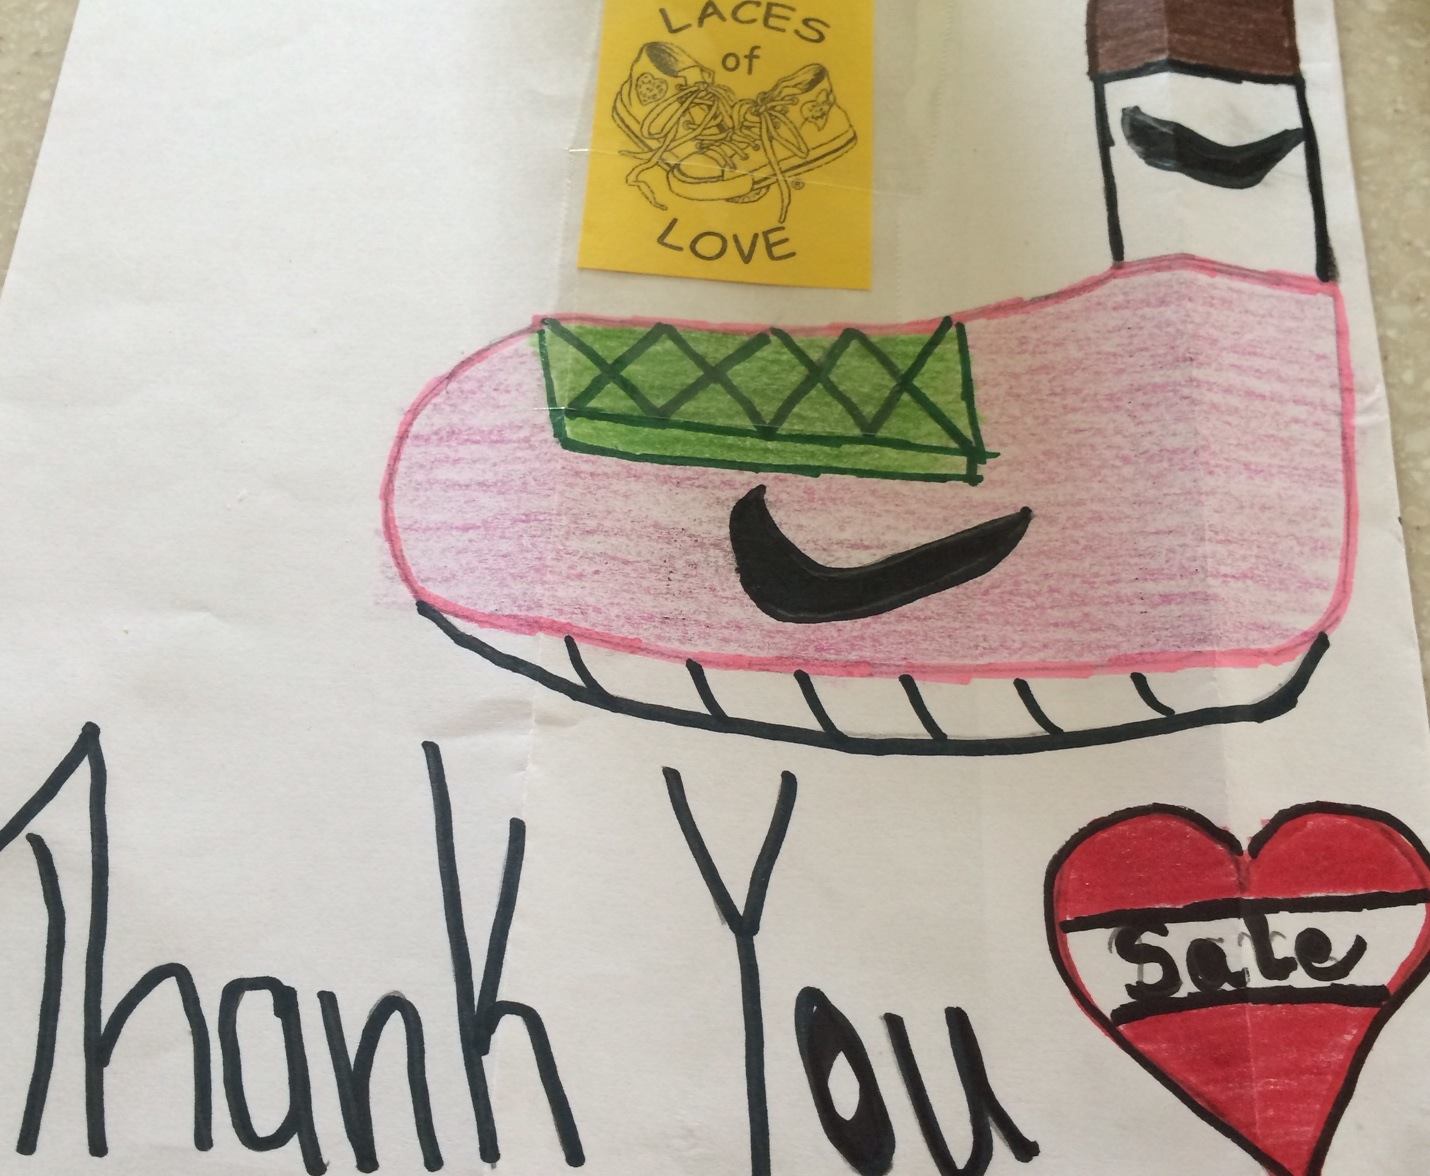 LACES
of
LOVE
Thank You
Sale